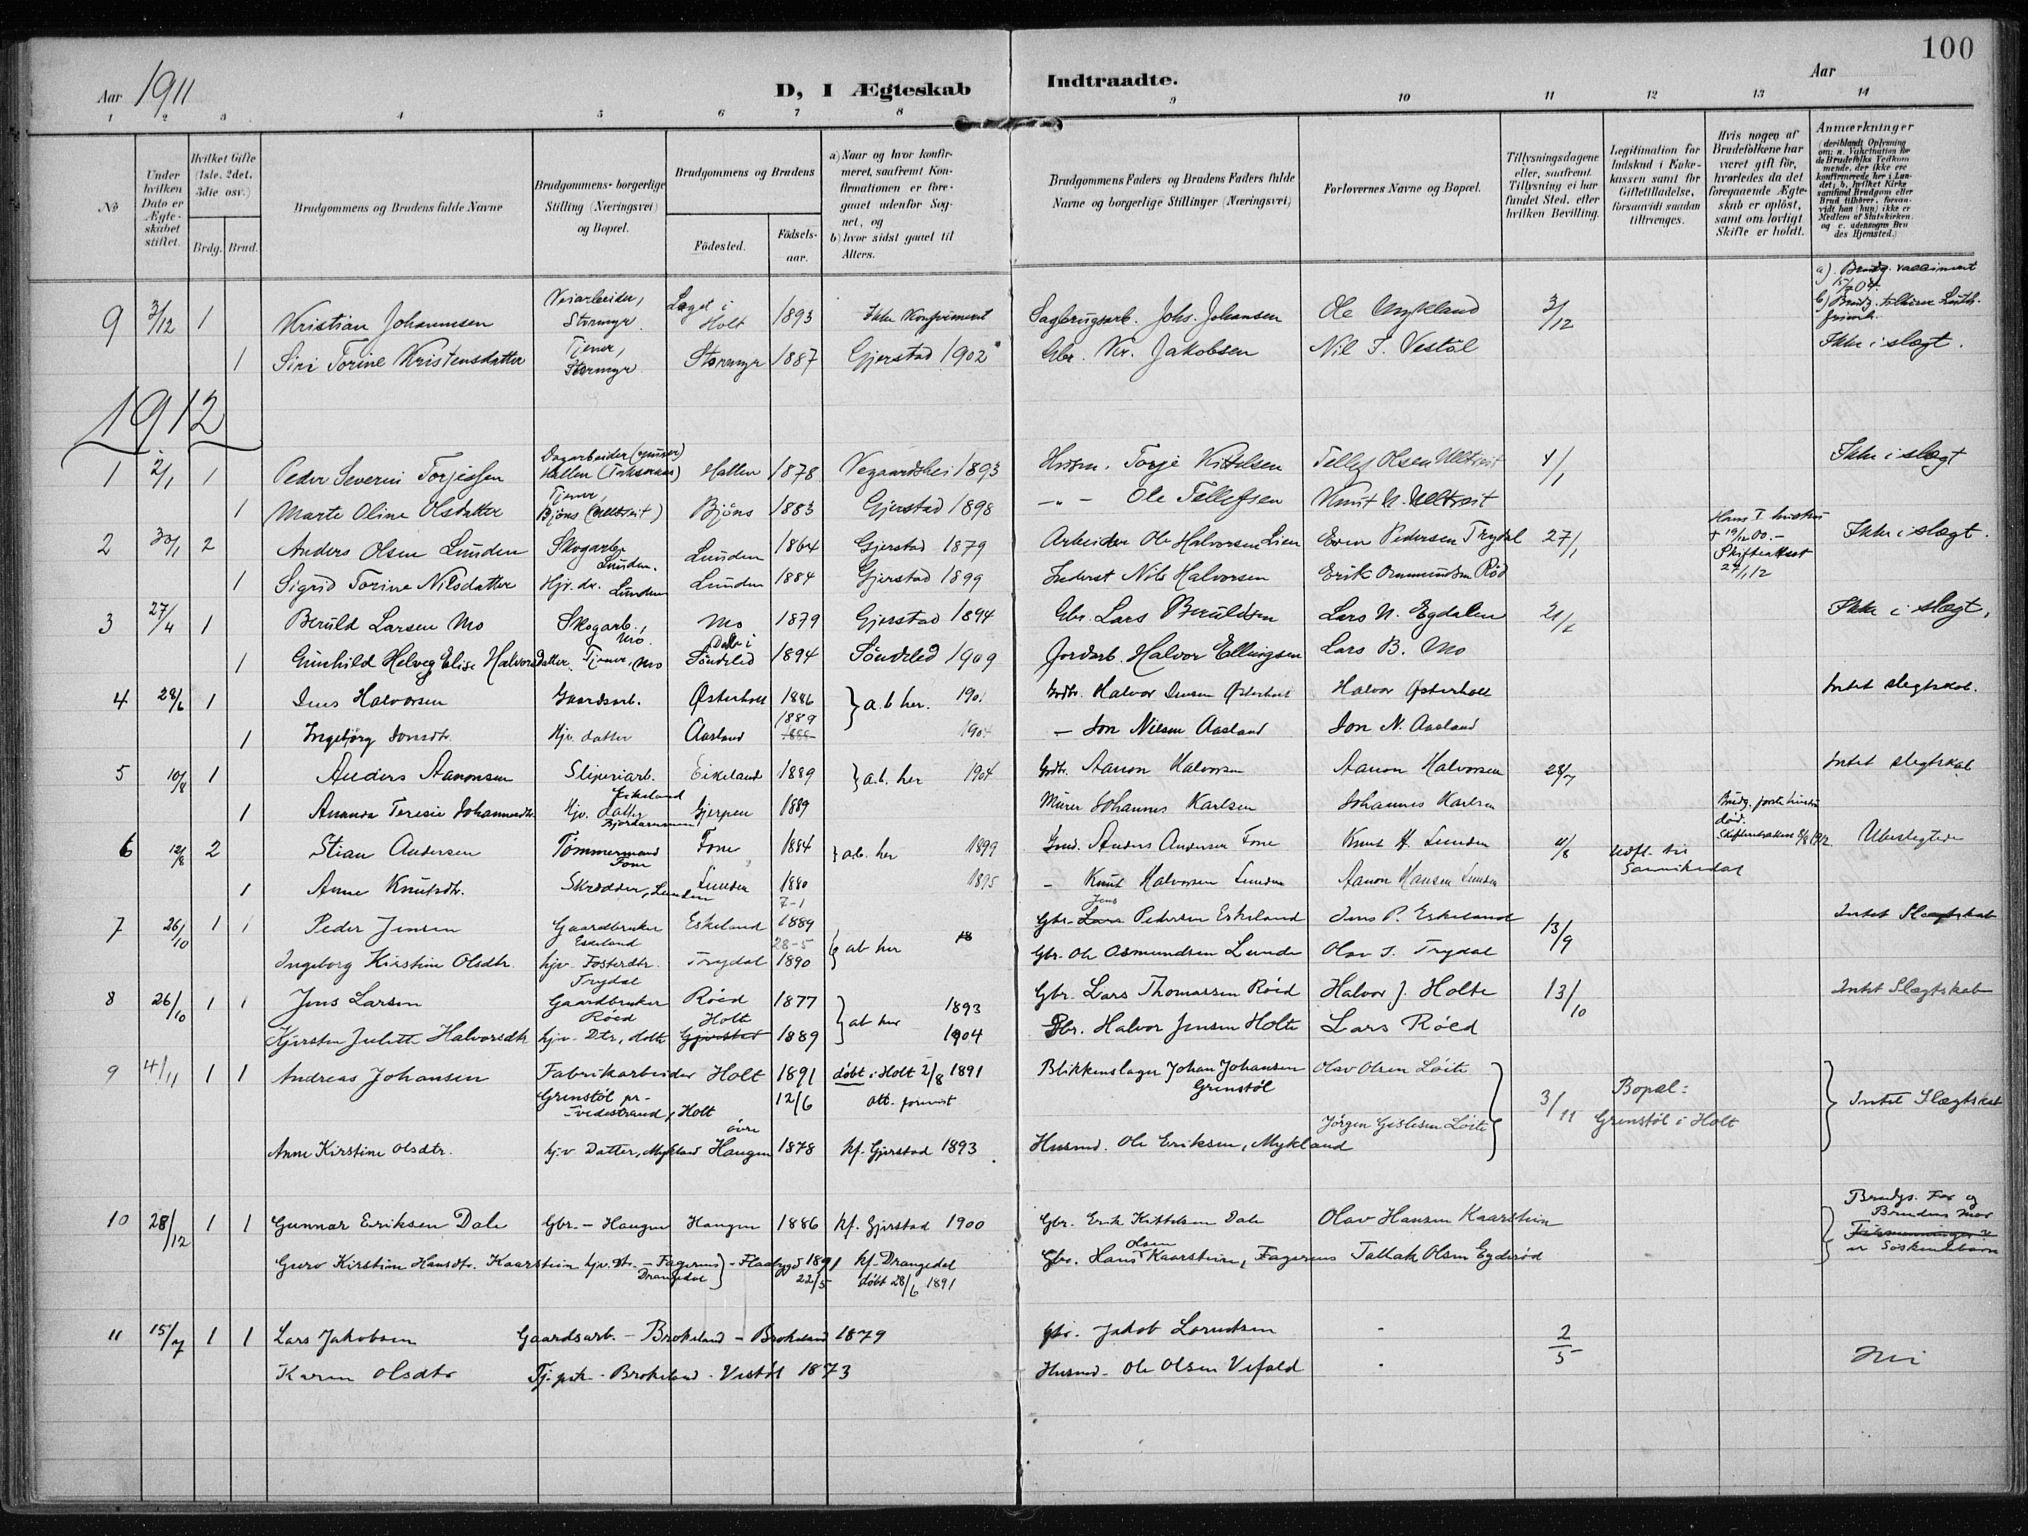 100
Aar 1911
D, I Ægteskab Indtraadte.
Aar
1 2 3 4 5 6 7 8 9 10 11 12 13 14
No
Under hvilken Dato er Ægteskabet stiftet.
Hvilket Gifte (1ste, 2det, 3die osv.)
Brdg. Brud.
Brudgommens og Brudens fulde Navne
Brudgommens borgerlige Stilling (Næringsvei) og Bopæl.
Brudgommens og Brudens
Fødested. Fødselsaar.
a) Naar og hvor konfirmeret, saafremt Konfirmationen er foregaaet udenfor Sognet, og b) hvor sidst gaaet til Alters.
Brudgommens Faders og Brudens Faders fulde Navne og borgerlige Stillinger (Næringsvei)
Forlovernes Navne og Bopæl.
Tillysningsdagene eller, saafremt Tillysning ei har fundet Sted, efter hvilken Bevilling.
Legitimation for Indskud i Enkekassen samt for Giftetilladelse, forsaavidt saadan tiltrænges.
Hvis nogen af Brudefolkene har været gift før, hvorledes da det foregaaende Ægteskab er opløst, samt om lovligt Skifte er holdt.
Anmærkninger
9 3/12 1 Kristian Johannsen Veiarbeider, Stormyr Laget i Holt 1893 Ikke Konfirmeret Sagbrugsarb. Johs. Johansen Ole Mykland 3/12 a) Brudg. vaccineret
1 Siri Torine Kristensdatter Tjener, Stormyr Stormyr 1887 Gjerstad 1902 Gbr. Kr. Jakobsen Nil T. Vestøl Ikke i slægt.
1912
1 2/1 1 Peder Severin Torjessen Dagarbeider Hallen Hallen 1878 Vegaardshei 1893 Husm. Torje Kittelsen Tellef Olsen Ueltveit 1/1 Ikke i slægt
1 Marte Oline Olsdatter Tjener, Bjöns (Ueltveit) Bjöns 1883 Gjerstad 1898 -"- Ole Tellefsen Knut N. Ueltveit
2 2 Anders Olsen Lunden Skogarb. Lunden. Lunden 1864 Gjerstad 1879 Arbeider Ole Halvorsen Lien Even Pedersen Trydal 27/1 Hans I hustru + 19/12 00. - Skifteattest 24/1 12 Ikke i slægt.
1 Sigrid Torine Nilsdatter Hjv. dr. Lunden Lunden 1884 Gjerstad 1899 Inderst Nils Halvorsen Erik Ommundsen Rød
3 27/4 1 Beruld Larsen Mo Skogarb., Mo Mo 1879 Gjerstad 1894 Gbr. Lars Beruldsen Lars N. Egdalen Ikke i slægt.
1 Gunhild Helveg Elise Halvorsdatter. Tjener, Mo Dale i Söndeled 1894 Söndeled 1909 Jordarb. Halvor Ellingsen Lars B. Mo
4 28/6 1 Jens Halvorsen Gaardsarb. Østerholt 1886 } a.b her. 1901 Gbr. Halvor Jensen Østerholt Halvor Østerholt Intet slegtskab.
1 Ingebjørg Jonsdtr. Hjv. datter Aasland 1889 1888 1904 - Jon Nilsen Aasland Jon N. Aasland
5 10/8 1 Anders Aanonsen Sliperiarb. Eikeland Eikeland 1889 } a.b. her 1904 Gbr. Aanon Halvorsen Aanon Halvorsen 28/7 Intet slegtskab
1 Amanda Teresie Johannesdtr. Hjv. datter Gjerpen 1889 Murer Johannes Karlsen Johannes Karlsen
6 12/8 2 Stian Andersen Tømmermand Fone Fone 1884 } a.b. her 1899 Anders Andersen Fone Knut H. Lunden 4/8 Udfl. til Sannikedal Brudg. første hustru død. Ubeslegtede
1 Anne Knutsdtr. Skrædder, Lunden Lunden 1880 1895 - Knut Halvorsen Lunden Aanon Hansen Lunden
7 26/10 1 1 Peder Jensen Gaardbruker Eskeland Eskeland 7-1 1889 } ab her 18 Gbr. Lars Jens Pedersen Eskeland Jens P. Eskeland 13/9 Intet Slægtskab
Ingeborg Kirstine Olsdtr. hjv. Fosterdtr. Trydal Trydal 28-5 1890 Gbr. Ole Osmundsen Lunde Olav T. Trydal
8 26/10 1 1 Jens Larsen Gaardbruker Röed Röed 1877 } ab her 1893 Gbr. Lars Thomassen Röed Halvor J. Holte 13/10 Intet Slægtskab
Kjersten Julette Halvorsdtr. hjv. Dtr, Holte Holte Gjerstad 1889 1904 Gbr. Halvor Jensen Holte Lars Röed
9 4/11 1 1 Andreas Johansen Fabrikarbeider Grenstöl pr. Tvedestrand, Holt Holt 1891 12/6 döbt i Holt 2/8 1891 Blikkenslager Johan Johansen Grenstöl Olav Olsen Löite 3/11 Bopæl: Grenstöl i Holt } Intet Slægtskab
Anne Kirstine Olsdtr. hjv. Datter, Mykland övre Haugen 1878 kf. Gjerstad 1893 Husmd. Ole Eriksen, Mykland Jörgen Gislesen Löite
10 28/12 1 1 Gunnar Eriksen Dale Gbr. - Haugen Haugen 1886 kf. Gjerstad 1900 Gbr. Erik Kittelsen Dale Olav Hansen Kaarstein Brudgs. Far og Brudens mor er Söskendebarn
Guro Kirstine Hansdtr. Kaarstein hjv. dtr. - Fagernes Drangedal } - Flaabygd 1891 22/5 kf. Drangedal döbt 28/6 1891 Gbr. Hans Olsen Kaarstein, Fagernes Tallak Olsen Egderöd
11 15/7 1 1 Lars Jakobsen Gaardsarb. - Brokeland - Brokeland 1879 Gbr. Jakob Larsen - 2/5
Karen Olsdtr Tj. pik - Brokeland - Vestöl 1873 Husmd. Ole Olsen Vefald - Nei